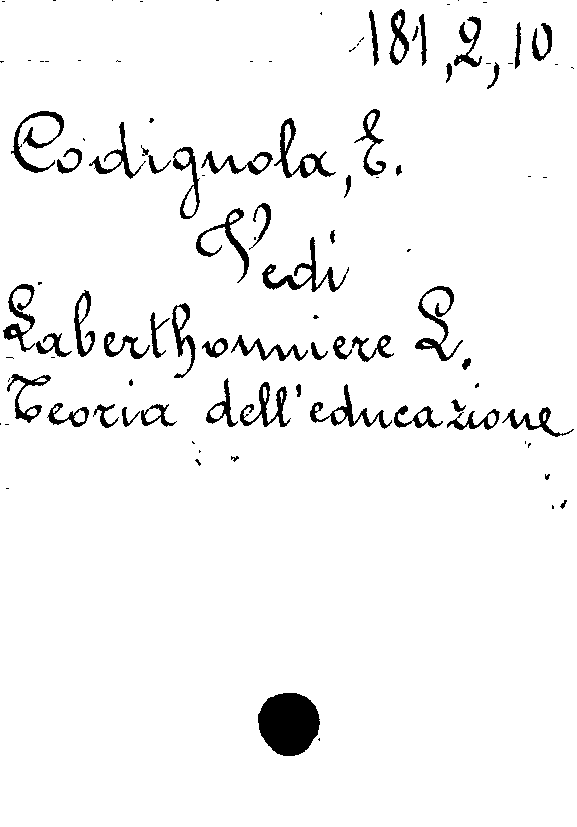 181,2,10
Codignola, E.
Vedi
Laberthonniere L.
Teoria dell'educazione